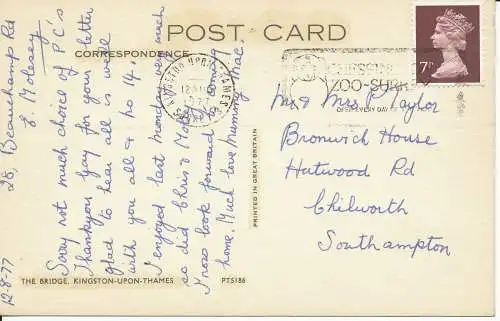 POST CARD
CORRESPONDENCE
28, Beauchamp Rd
E. Molesey
Sorry not much choice of P.C's
Thankyou Gay for your letter
glad to hear all is well
with you all & no 14.
I enjoyed last Monday very much
so did Chris & Molly
I now look forward to coming
home. Much love Mummy & Mac
12-8-77
THE BRIDGE. KINGSTON-UPON-THAMES
PT5186
PRINTED IN GREAT BRITAIN
KINGSTON UPON THAMES
1977
CHESSINGTON
ZOO-SURREY
OPEN EVERY DAY
7P
Mr & Mrs P Taylor
Bronwich House
Hutwood Rd
Chilworth
Southampton